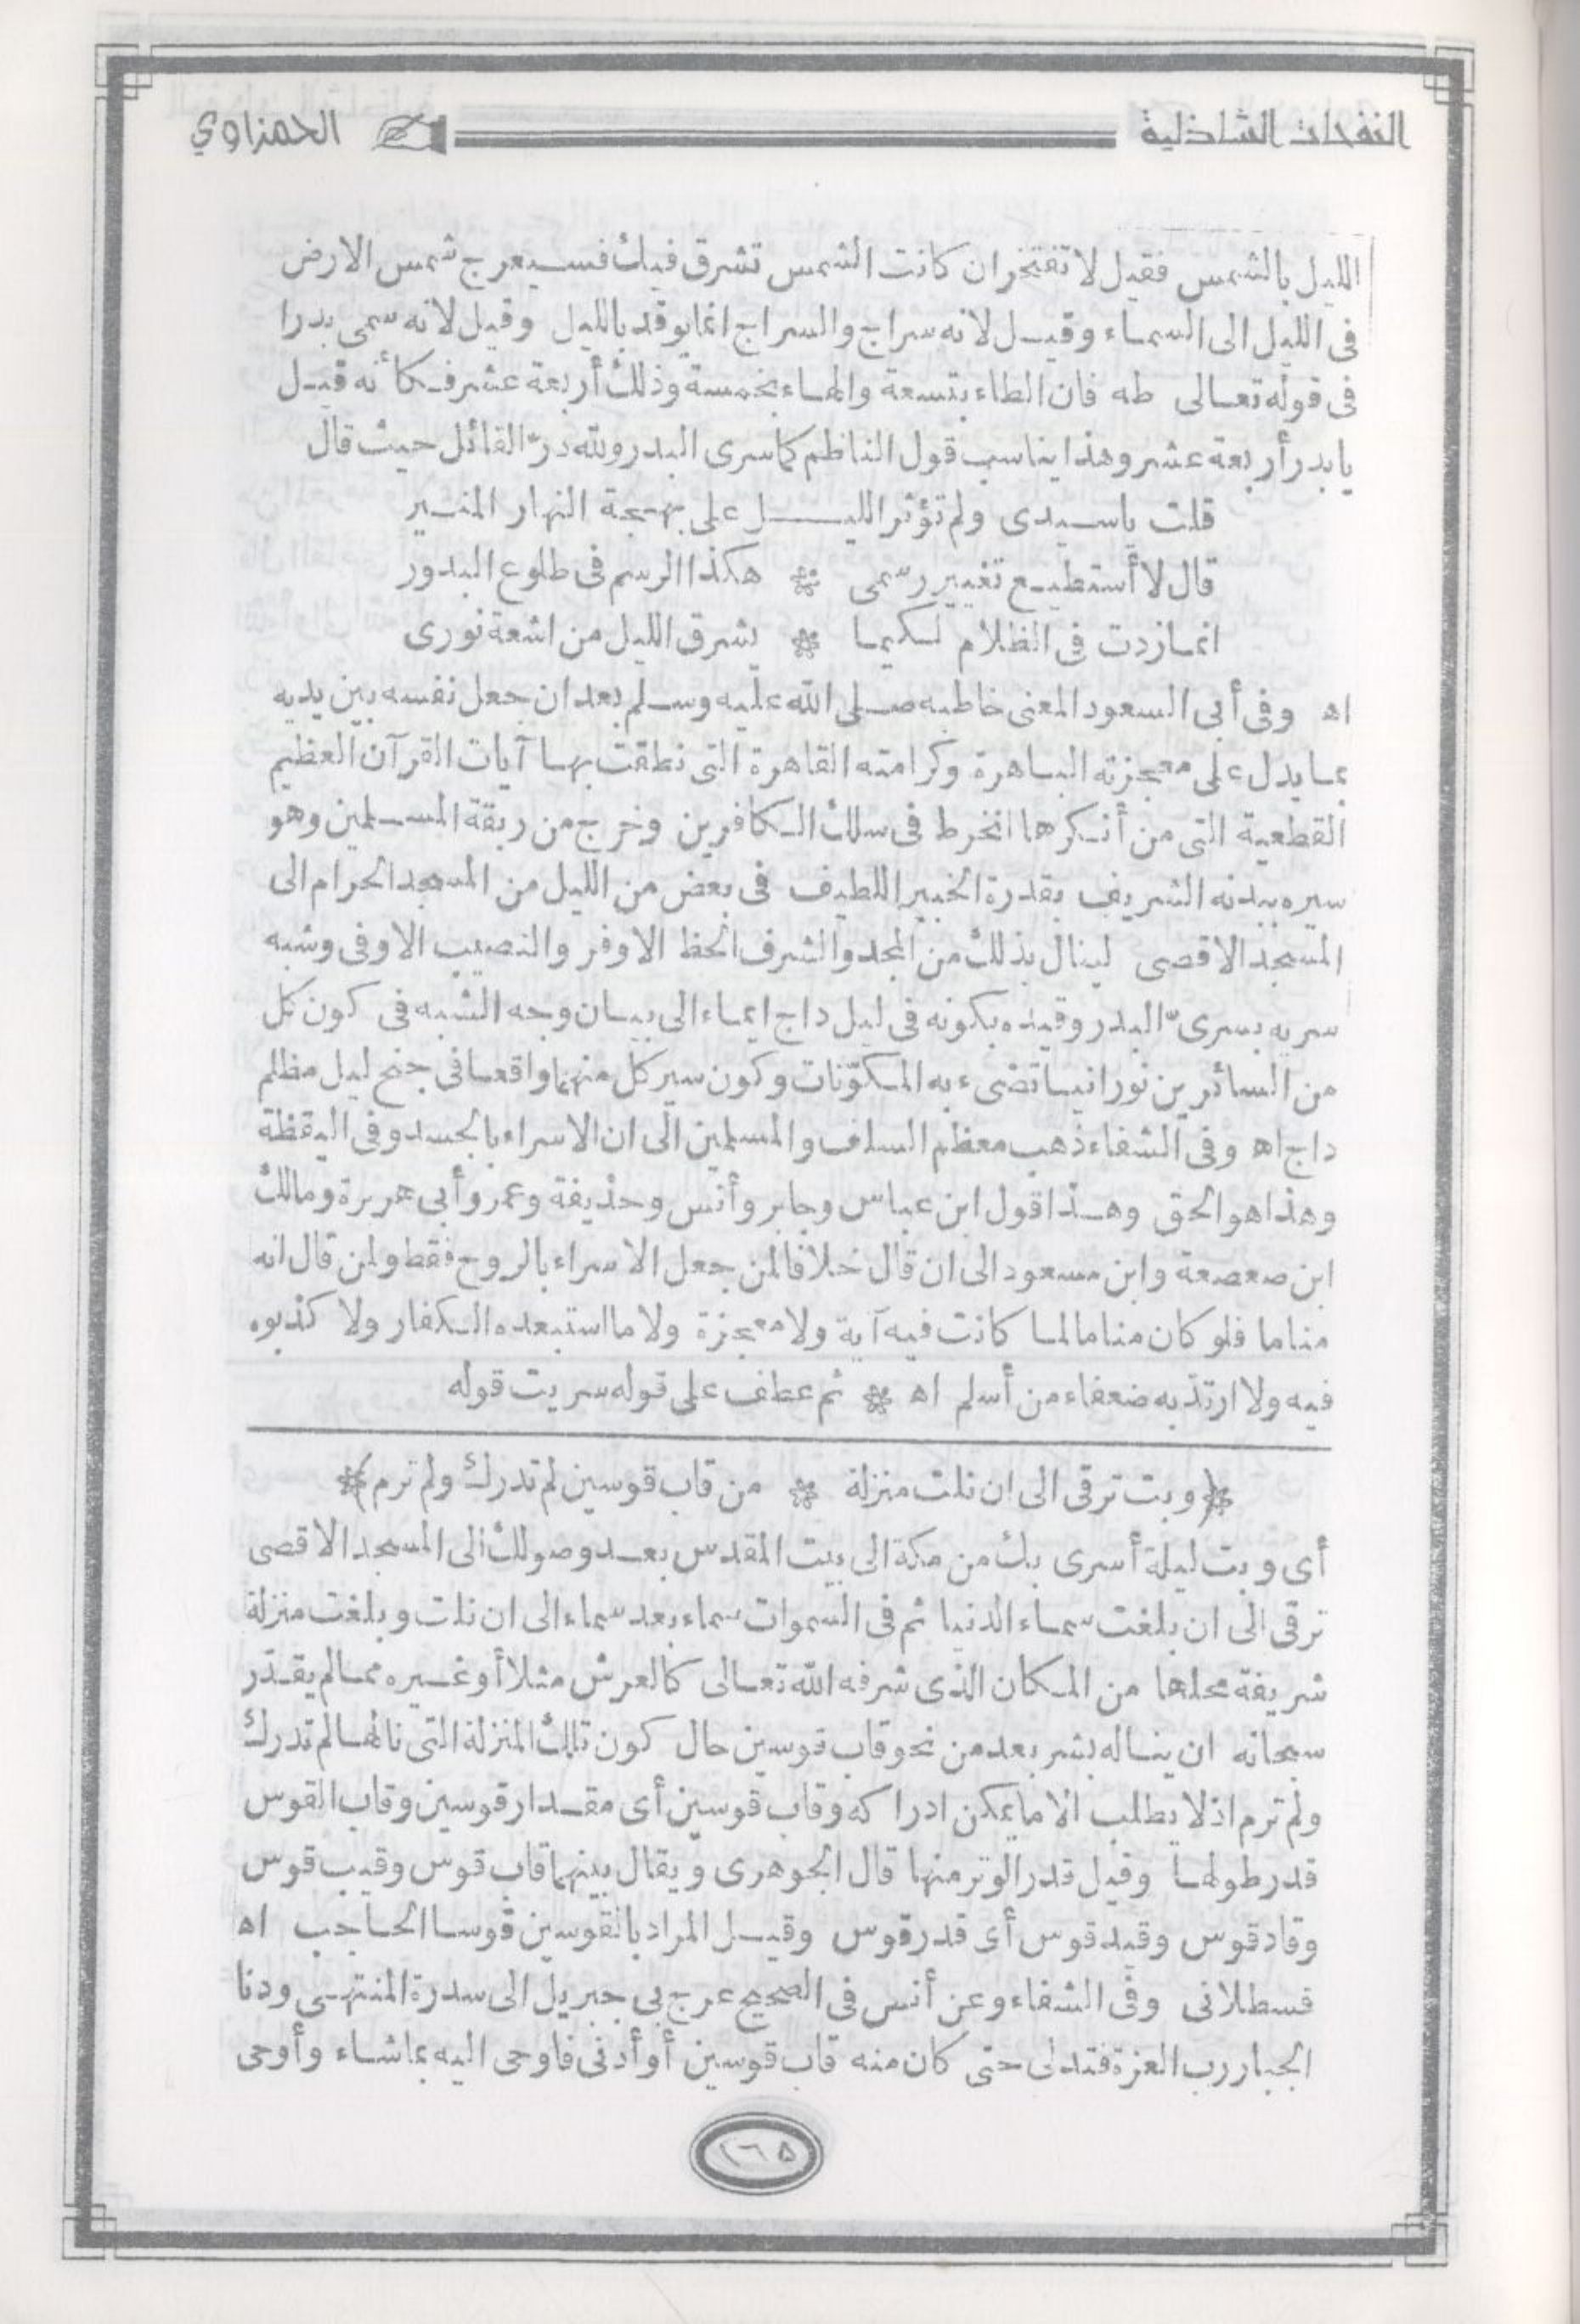 النفحات الشاذلية الحمزاوي
الليل بالشمس فقيل لا تفتخر ان كانت الشمس تشرق فيك فسيعرج شمس الارض
فى الليل الى السماء وقيل لانه سراج والسراج انما يوقد بالليل وقيل لانه سمى بدرا
فى قوله تعالى طه فان الطاء بتسعة والهاء بخمسة وذلك أربعة عشر فكأنه قيل
يا بدر أربعة عشر وهذا يناسب قول الناظم كما سرى البدر ولله درّ القائل حيث قال
قلت ياسيدى ولم تؤثر الليل على بهجة النهار المنير
قال لا أستطيع تغيير رسمى * هكذا الرسم فى طلوع البدور
انما زدت فى الظلام لكيما * يشرق الليل من اشعة نورى
اه وفى أبى السعود المعنى خاطبه صلى الله عليه وسلم بعد ان جعل نفسه بين يديه
بما يدل على معجزته الباهرة وكرامته القاهرة التى نطقت بها آيات القرآن العظيم
القطعية التى من أنكرها انخرط فى سلك الكافرين وخرج من ربقة المسلمين وهو
سيره ببدنه الشريف بقدرة الخبير اللطيف فى بعض من الليل من المسجد الحرام الى
المسجد الاقصى لينال بذلك من المجد والشرف الحظ الاوفر والنصيب الاوفى وشبه
سريه بسرى البدر وقيده بكونه فى ليل داج ايماء الى بيان وجه الشبه فى كون كل
من السائرين نورانيا تضىء به المكوّنات وكون سير كل منهما واقعا فى جنح ليل مظلم
داج اه وفى الشفاء ذهب معظم السلف والمسلمين الى ان الاسراء بالجسد وفى اليقظة
وهذا هو الحق وهذا قول ابن عباس وجابر وأنس وحذيفة وعمر وأبى هريرة ومالك
ابن صعصعة وابن مسعود الى ان قال خلافا لمن جعل الاسراء بالروح فقط ولمن قال انه
مناما فلو كان مناما لما كانت فيه آية ولا معجزة ولا ما استبعده الكفار ولا كذبوه
فيه ولا ارتدّ به ضعفاء من أسلم اه * ثم عطف على قوله سريت قوله
*(وبت ترقى الى ان نلت منزلة * من قاب قوسين لم تدرك ولم ترم)*
أى وبت ليلة أسرى بك من مكة الى بيت المقدس بعد وصولك الى المسجد الاقصى
ترقى الى ان بلغت سماء الدنيا ثم فى السموات سماء بعد سماء الى ان نلت وبلغت منزلة
شريفة محلها من المكان الذى شرفه الله تعالى كالعرش مثلا أو غيره مما لم يقدّر
سبحانه ان يناله بشر بعد من نحو قاب قوسين حال كون تلك المنزلة التى نالها لم تدرك
ولم ترم اذ لا يطلب الا ما يمكن ادراكه وقاب قوسين أى مقدار قوسين وقاب القوس
قدر طولها وقيل قدر الوتر منها قال الجوهرى ويقال بينهما قاب قوس وقيب قوس
وقاد قوس وقيد قوس أى قدر قوس وقيل المراد بالقوسين قوسا الحاجب اه
قسطلانى وفى الشفاء وعن أنس فى الصحيح عرج بى جبريل الى سدرة المنتهى ودنا
الجبار رب العزة فتدلى حتى كان منه قاب قوسين أو أدنى فاوحى اليه بما شاء وأوحى
١٦٥